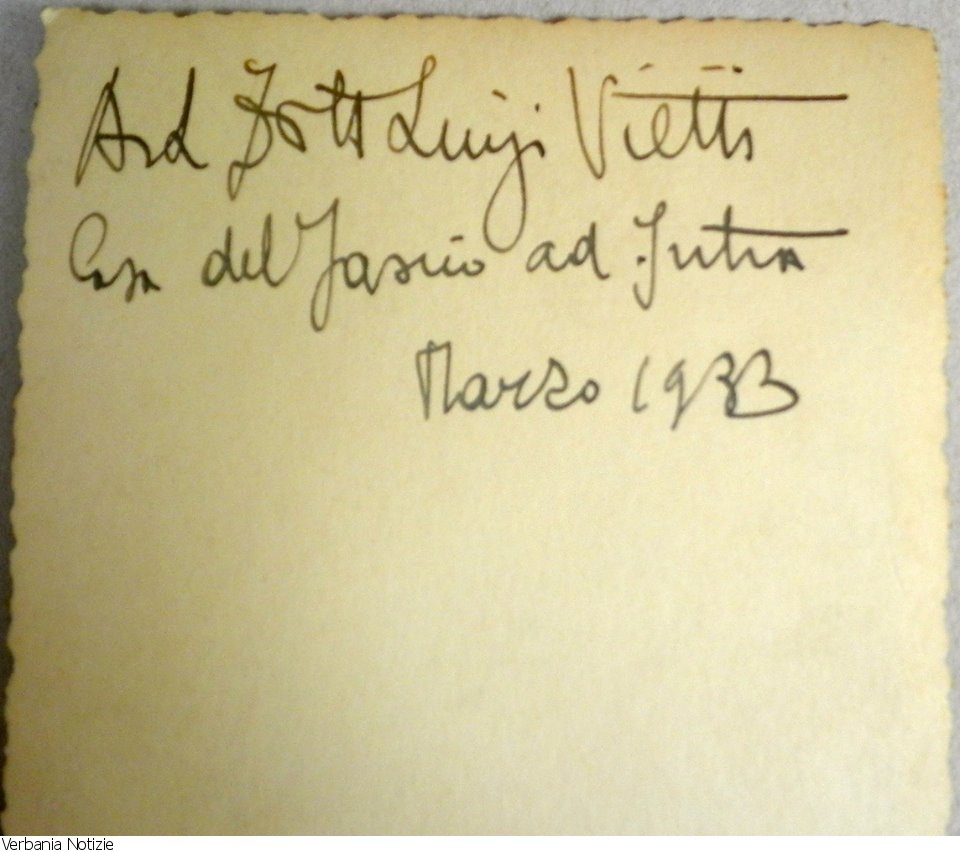 Arch Dott Luigi Vietti
Casa del Fascio ad Intra
Marzo 1933
Verbania Notizie